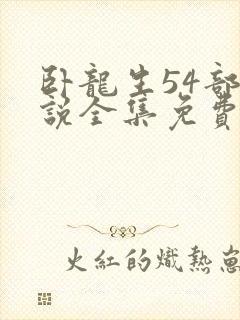 卧龍生54部
説全集免費
火紅的熾熱